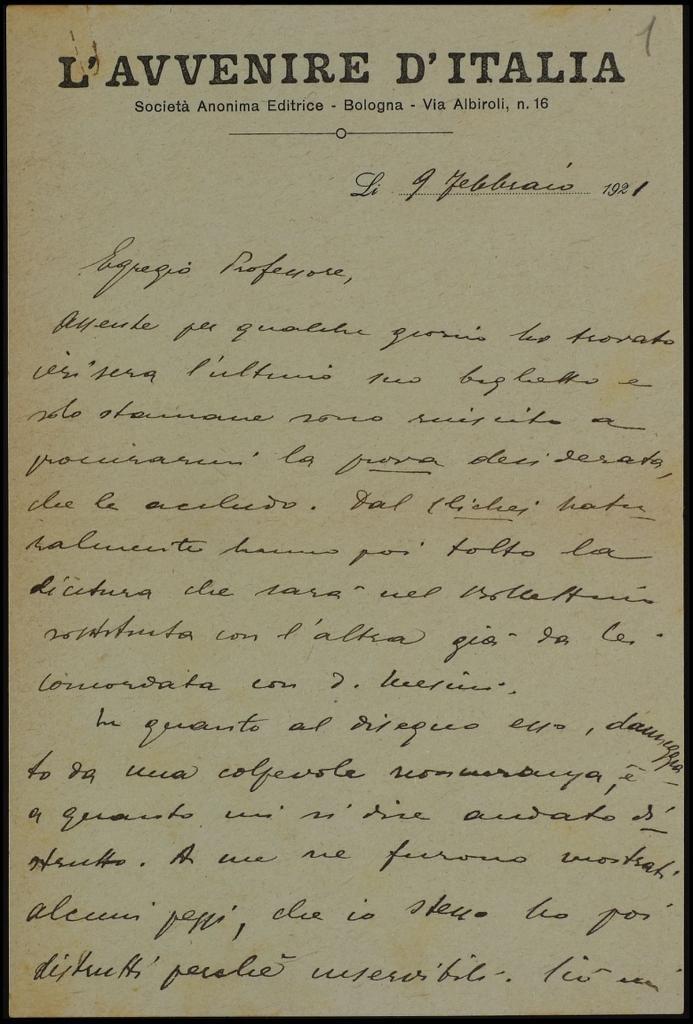 1
L'AVVENIRE D'ITALIA
Società Anonima Editrice - Bologna - Via Albiroli, n. 16
Li 9 Febbraio 1921
Egregio Professore,
Assente per qualche giorno ho trovato
ieri sera l'ultimo suo biglietto e
solo stamane sono riuscito a
procurarmi la prova desiderata,
che le accludo. Dal clichei natu
ralmente hanno poi tolto la
dicitura che sarà nel Bollettino
sostituita con l'altra già da lei
concordata con D. Mesini.
In quanto al disegno esso, danneggia
to da una colpevole noncuranza, è
a quanto mi si dice andato di
strutto. A me ne furono mostrati
alcuni pezzi, che io stesso ho poi
distrutti perchè inservibili. Ciò mi